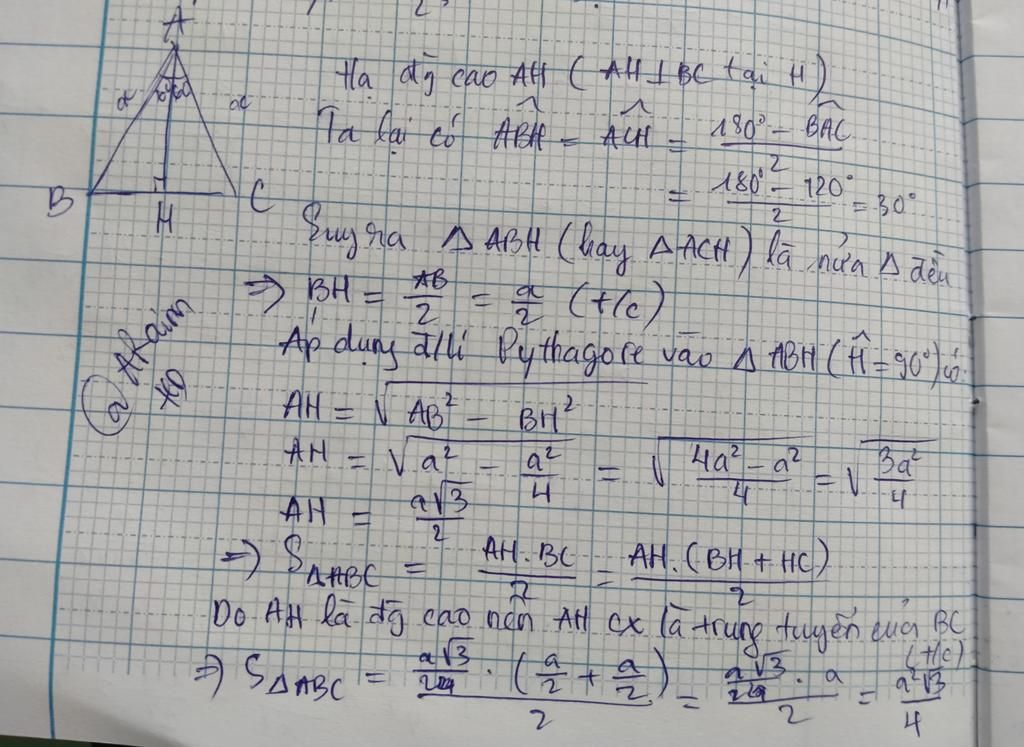 A
a
a
B
H
C
Hạ đg cao AH ( AH ⊥ BC tại H )
Ta lại có ABĤ = AĈH = (180° - BÂC) / 2
= (180° - 120°) / 2 = 30°
Suy ra Δ ABH ( hay Δ ACH ) là nửa Δ đều
=> BH = AB/2 = a/2 (t/c)
Áp dụng đ/lí Pythagore vào Δ ABH ( Ĥ = 90° ) có
AH = √(AB² - BH²)
AH = √(a² - a²/4) = √((4a² - a²)/4) = √(3a²/4)
AH = a√3/2
=> S ΔABC = AH . BC / 2 = AH . (BH + HC) / 2
Do AH là đg cao nên AH cx là trung tuyến của BC
(t/c)
=> S ΔABC = a√3/2 . (a/2 + a/2) / 2 = a√3/2 . a / 2 = a²√3/4